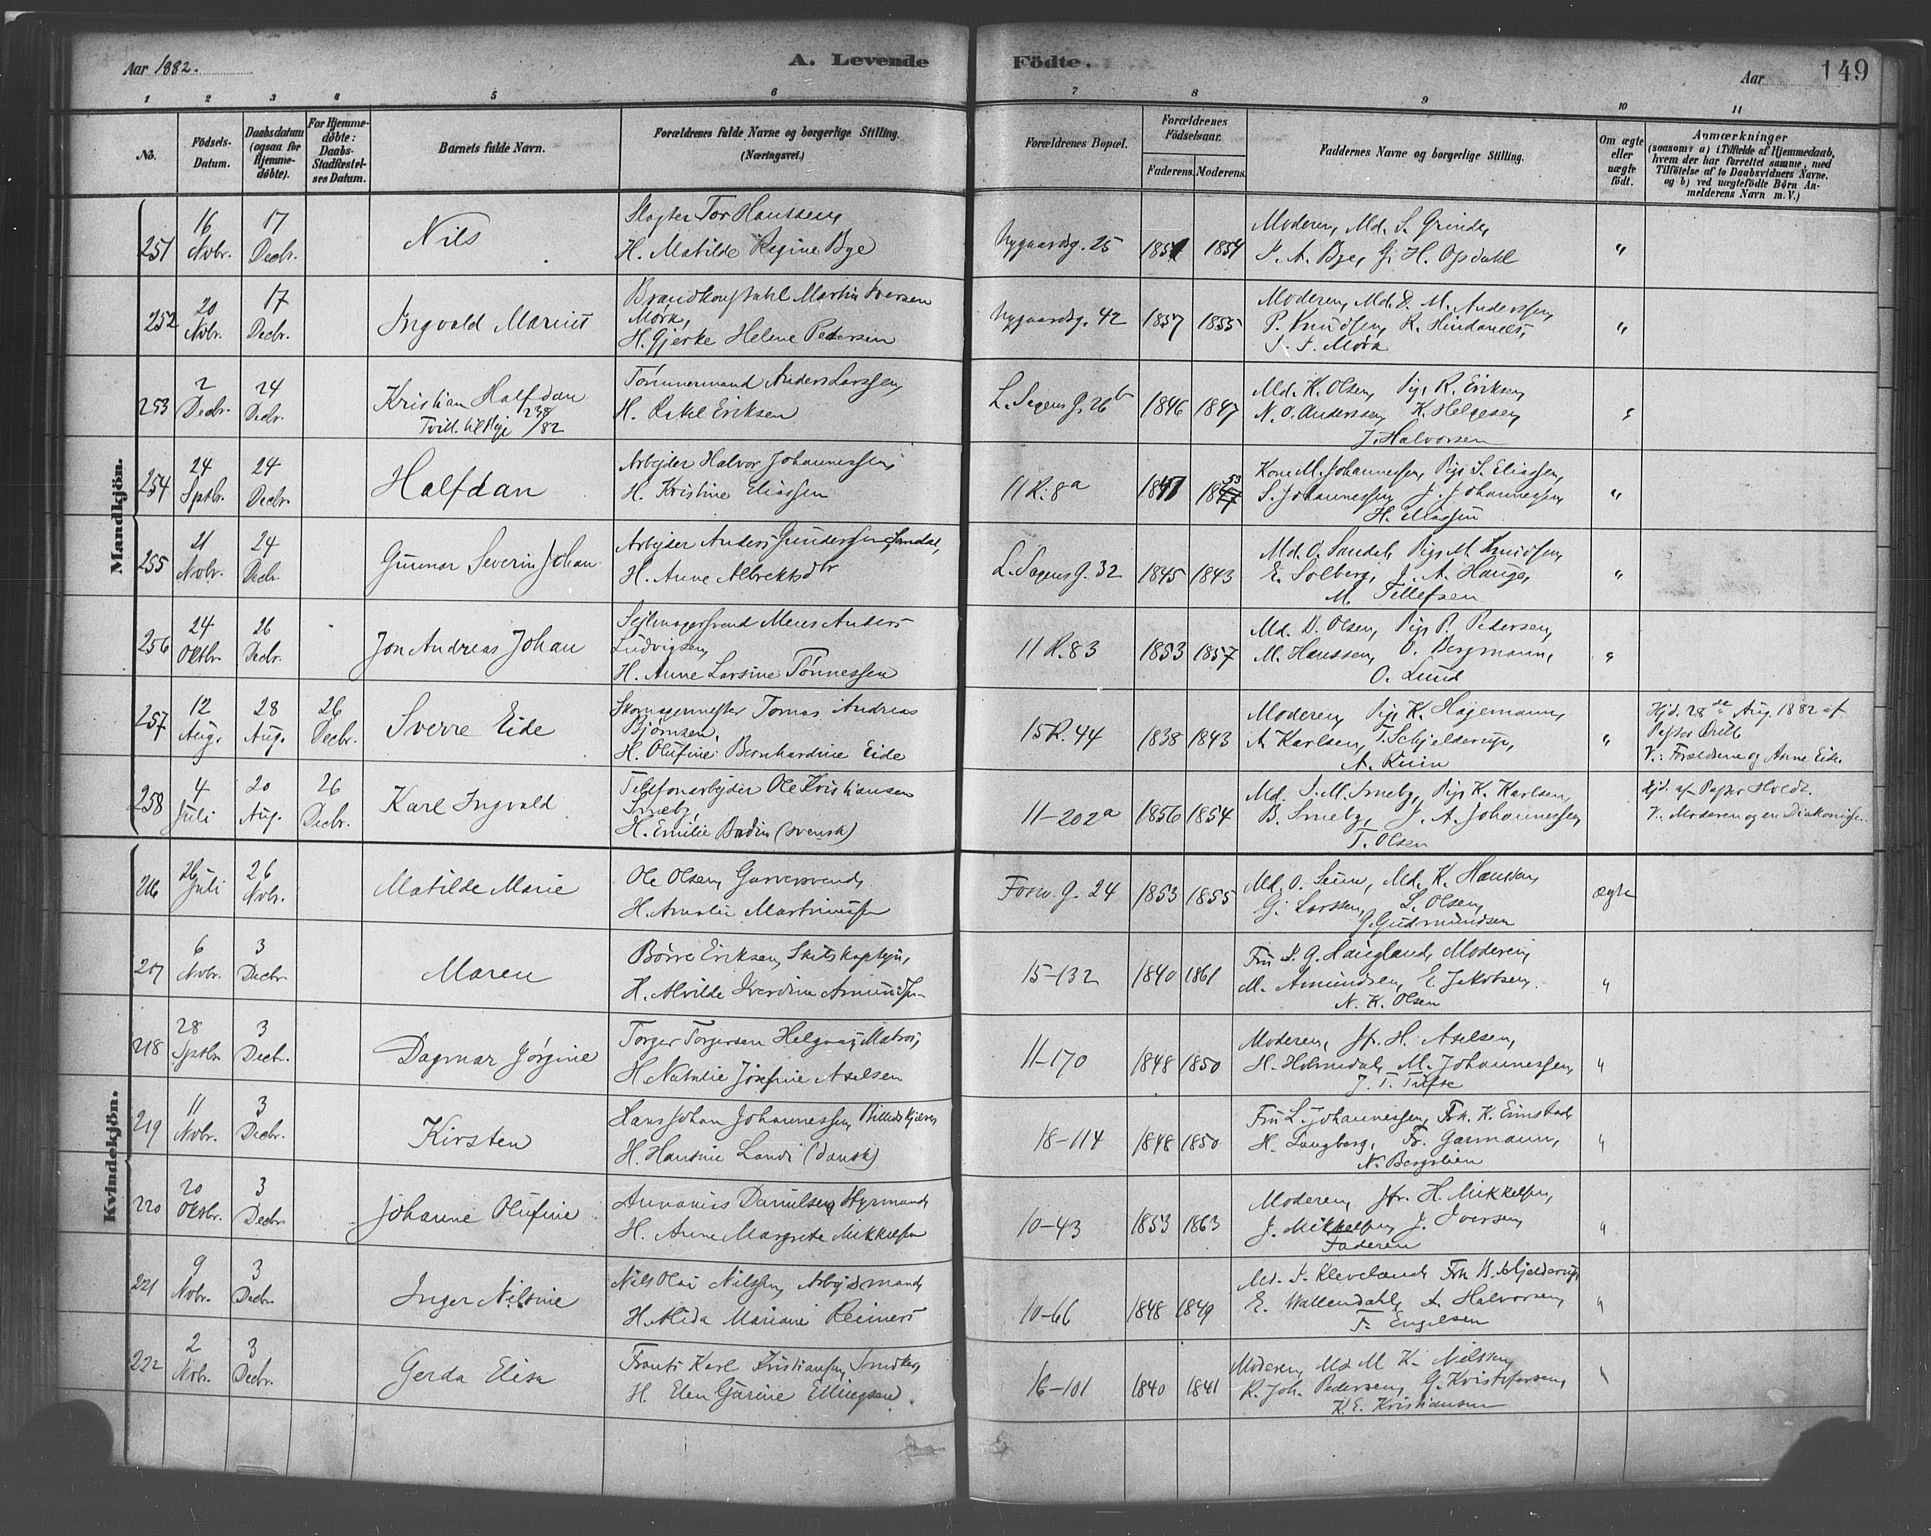 Aar 1882.
A. Levende
Födte.
Aar
149
1 2 3 4 5 6 7 8 9 10 11
No.
Födsels-Datum.
Daabsdatum (ogsaa for Hjemme-döbte).
For Hjemme-döbte: Daabs-Stadfæstel-ses Datum.
Barnets fulde Navn.
Forældrenes fulde Navne og borgerlige Stilling. (Næringsvei.)
Forældrenes Bopæl.
Forældrenes Födselsaar.
Faderens. Moderens.
Faddernes Navne og borgerlige Stilling.
Om ægte eller uægte födt.
Anmærkninger
(saasom: a) i Tilfælde af Hjemmedaab, hvem der har forrettet samme, med Tilföielse af to Daabsvidners Navne. og b) ved uægtefödte Börn An-melderens Navn m. V.)
Mandkjön.
251 16 Novbr. 17 Decbr. Nils
Slagter Tor Hanssen,
H. Matilde Regine Bye
Nygaardsg. 25 1851 1854
Moderen, Md. S. Grinde,
A. Bye, H. Opdahl "
252 20 Novbr. 17 Decbr. Ingvald Marius
Brandkonstabel Martin Iversen
Mørk,
H. Gjerke Helene Pedersen
Nygaardsg. 42 1857 1855
Moderen, Md. D. M. Anderssen,
P. Knudsen, R. Hindanes,
Mørk "
253 2 Decbr. 24 Decbr. Kristian Halfdan
Tvill. til Pige 238/82
Tømmermand Anders Larssen,
H. Rakel Eriksen
L. Sagens G. 26b 1846 1847
Md. K. Olsen, Pige R. Eriksen,
N. O. Anderssen, K. Helgesen,
J. Halvorsen "
254 24 Septbr. 24 Decbr. Halfdan
Arbejder Halvor Johannessen,
H. Kristine Eliassen
11 R. 8a 1847 1853
Kone M. Johannessen, Pige S. Eliassen,
S. Johannessen, J. Johannessen,
"
255 21 Novbr. 24 Decbr. Gunnar Severin Johan
Arbejder Anders Gundersen Sandal,
H. Anne Albrektsdtr
L. Sagens G. 32 1845 1843
Md. O. Sandal, Pige M. Knudsen,
E. Solberg, J. A. Hauge,
M. Tellefsen "
256 24 Oktbr. 26 Decbr. Jon Andreas Johan
Sejlmagersvend Anders
Ludvigsen,
H. Anne Larsine Tønnessen
11 R. 83 1853 1857
Md. D. Olsen, Pige P. Pedersen,
M. Hanssen, O. Bergmann,
O. Lund "
257 12 Aug. 28 Aug. 26 Decbr. Sverre Eide
Skomagermester Tomas Andreas
Bjørnsen,
H. Olufine Bernhardine Eide
15 R. 44 1838 1843
Moderen, Pige K. Hagemann,
A Karlsen, T. Schjelderup,
A. "
Hjd. 28de Aug. 1882 af
Pastor
V.: Forældrene og Anne Eide.
258 4 Juli 20 Aug. 26 Decbr. Karl Ingvald
Telefonarbejder Ole Kristiansen
Smeby,
H. Emilie Bodin (svensk)
11-202a 1856 1854
Md. S. M. Smeby, Pige K. Karlsen,
B. Smeby, J. A. Johannessen,
T. Olsen
Hjd. af Pastor Hvidt.
V.: Moderen og en Diakonisse
Kvindekjön.
216 26 Juli 26 Novbr. Matilde Marie
Ole Olsen, Garversvend,
H. Amalie Martinussen
Forsv. G. 24 1853 1855
Md. O. Seim, Md. K. Hanssen,
G. Larssen, L. Olsen,
G. Gudmundsen ægte
217 6 Novbr. 3 Decbr. Maren
Børre Eriksen, Skibskaptejn,
H. Alvilde Iverdine Amundsen
15-132 1840 1861
Fru S. G. Haugland, Moderen,
M. Amundsen, E. Jakobsen.
N. K. Olsen "
218 28 Septbr. 3 Decbr. Dagmar Jørgine
Torger Torgersen Helgøvaj, Matros,
H. Natalie Josefine Axelsen
11-170 1848 1850
Moderen, Jfr. H. Axelsen,
H. Holmedal, M. Johannessen,
"
219 11 Novbr. 3 Decbr. Kirsten
Hans Johan Johannessen, Billedskjærer
H. Hansine Landi (dansk)
18-114 1848 1850
Fru L. Johannessen, Frk. K. Einstad,
H. Langberg, Fr. Garmann,
N. Bergslien "
220 20 Oktbr. 3 Decbr. Johanne Olufine
Annanias Danielsen, Styrmand,
H. Anne Margrete Mikkelsen
10-43 1853 1863
Moderen, Jfr. H. Mikkelsen,
J. Mikkelsen, J. Iversen,
Faderen "
221 9 Novbr. 3 Decbr. Inger Nilsine
Nils Olai Nilssen, Arbejdsmand,
H. Alida Mariane Reimers
10-66 1848 1849
Md. F. Kleveland, Frk B. Schjelderup
E. Wallendahl, A. Halvorsen,
F. Engelsen "
222 2 Novbr. 3 Decbr. Gerda Elise
Frants Karl Kristiansen, Snedker,
H. Elen Gurine Ellingsen.
16-101 1840 1841
Moderen, Md M. K. Nilssen,
R. Joh. Pedersen, G. Kristofersen,
K. E. Kristiansen "